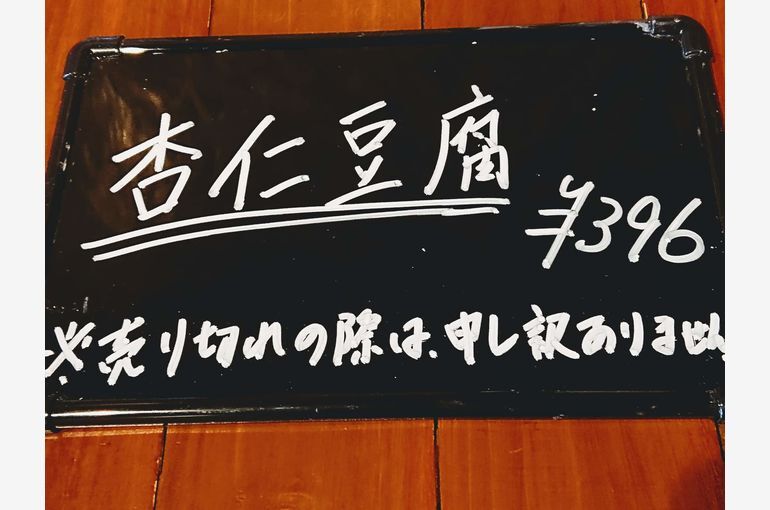 杏仁豆腐
¥396
※売り切れの際は、申し訳ありません